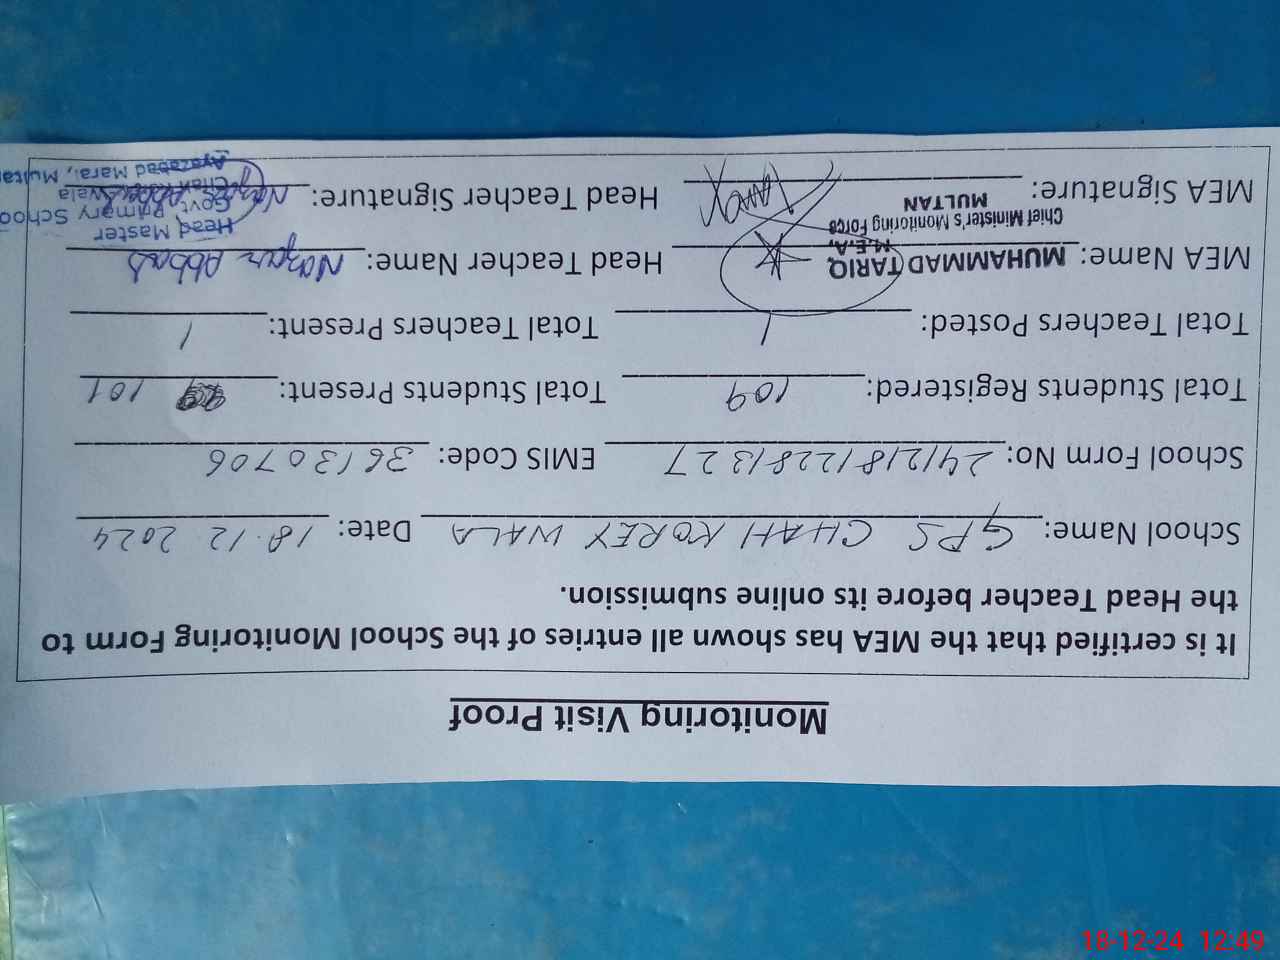 Monitoring Visit Proof
It is certified that the MEA has shown all entries of the School Monitoring Form to
the Head Teacher before its online submission.
School Name: GPS CHAH KOREY WALA Date: 18.12.2024
School Form No: 241218122813 27 EMIS Code: 36130706
Total Students Registered: 109 Total Students Present: 101
Total Teachers Posted: 1 Total Teachers Present: 1
MEA Name: MUHAMMAD TARIQ Head Teacher Name: Nazar Abbas
M.E.A,
Chief Minister's Monitoring Force
MULTAN
MEA Signature: Head Teacher Signature: Nazar Abbas
Head Master
Govt. Primary School
Chah Wala
Ayazabad Maral, Multan
18-12-24 12:49